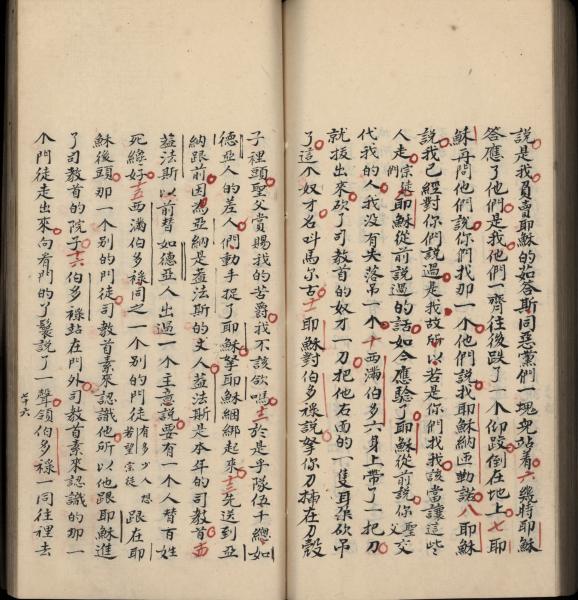 說是我負賣耶穌的茹答斯同惡黨們一塊兒站着六幾時耶穌
答應了他們是我他們一齊往後跌了一个仰跤倒在地上七耶
穌再問他們說你們找那一个他們說找耶穌納匝勒諾八耶穌
說我已經對你們說過是我故所以若是你們找我該當讓這些
人走宗徒們耶穌從前說過的話如今應驗了耶穌從前說你聖父交
代我的人我沒有失落吊一个十西滿伯多六身上帶了一把刀
就拔出來砍了司教首的奴才一刀把他右面的一隻耳朶砍吊
了這个奴才名呌馬尔古十一耶穌對伯多祿說拏你刀揷在刀殼
子裡頭聖父賞賜我的苦爵我不該飲嗎十二於是乎隊伍千總如
德亞人的差人們動手捉了耶穌拏耶穌綑綁起來十三先送到亞
納跟前因為亞納是盖法斯的丈人盖法斯是本年的司教首十四
盖法斯以前替如德亞人出過一个主意說要有一个人替百姓
死纔好十五西滿伯多祿同之一个別的門徒有多少人想若望宗徒跟在耶
穌後頭那一个別的門徒司教首素來認識他所以他跟耶穌進
了司教首的院子十六伯多祿站在門外司教首素來認識的那一
个門徒走出來向看門的了鬟說了一聲領伯多祿一同往裡去
七十六